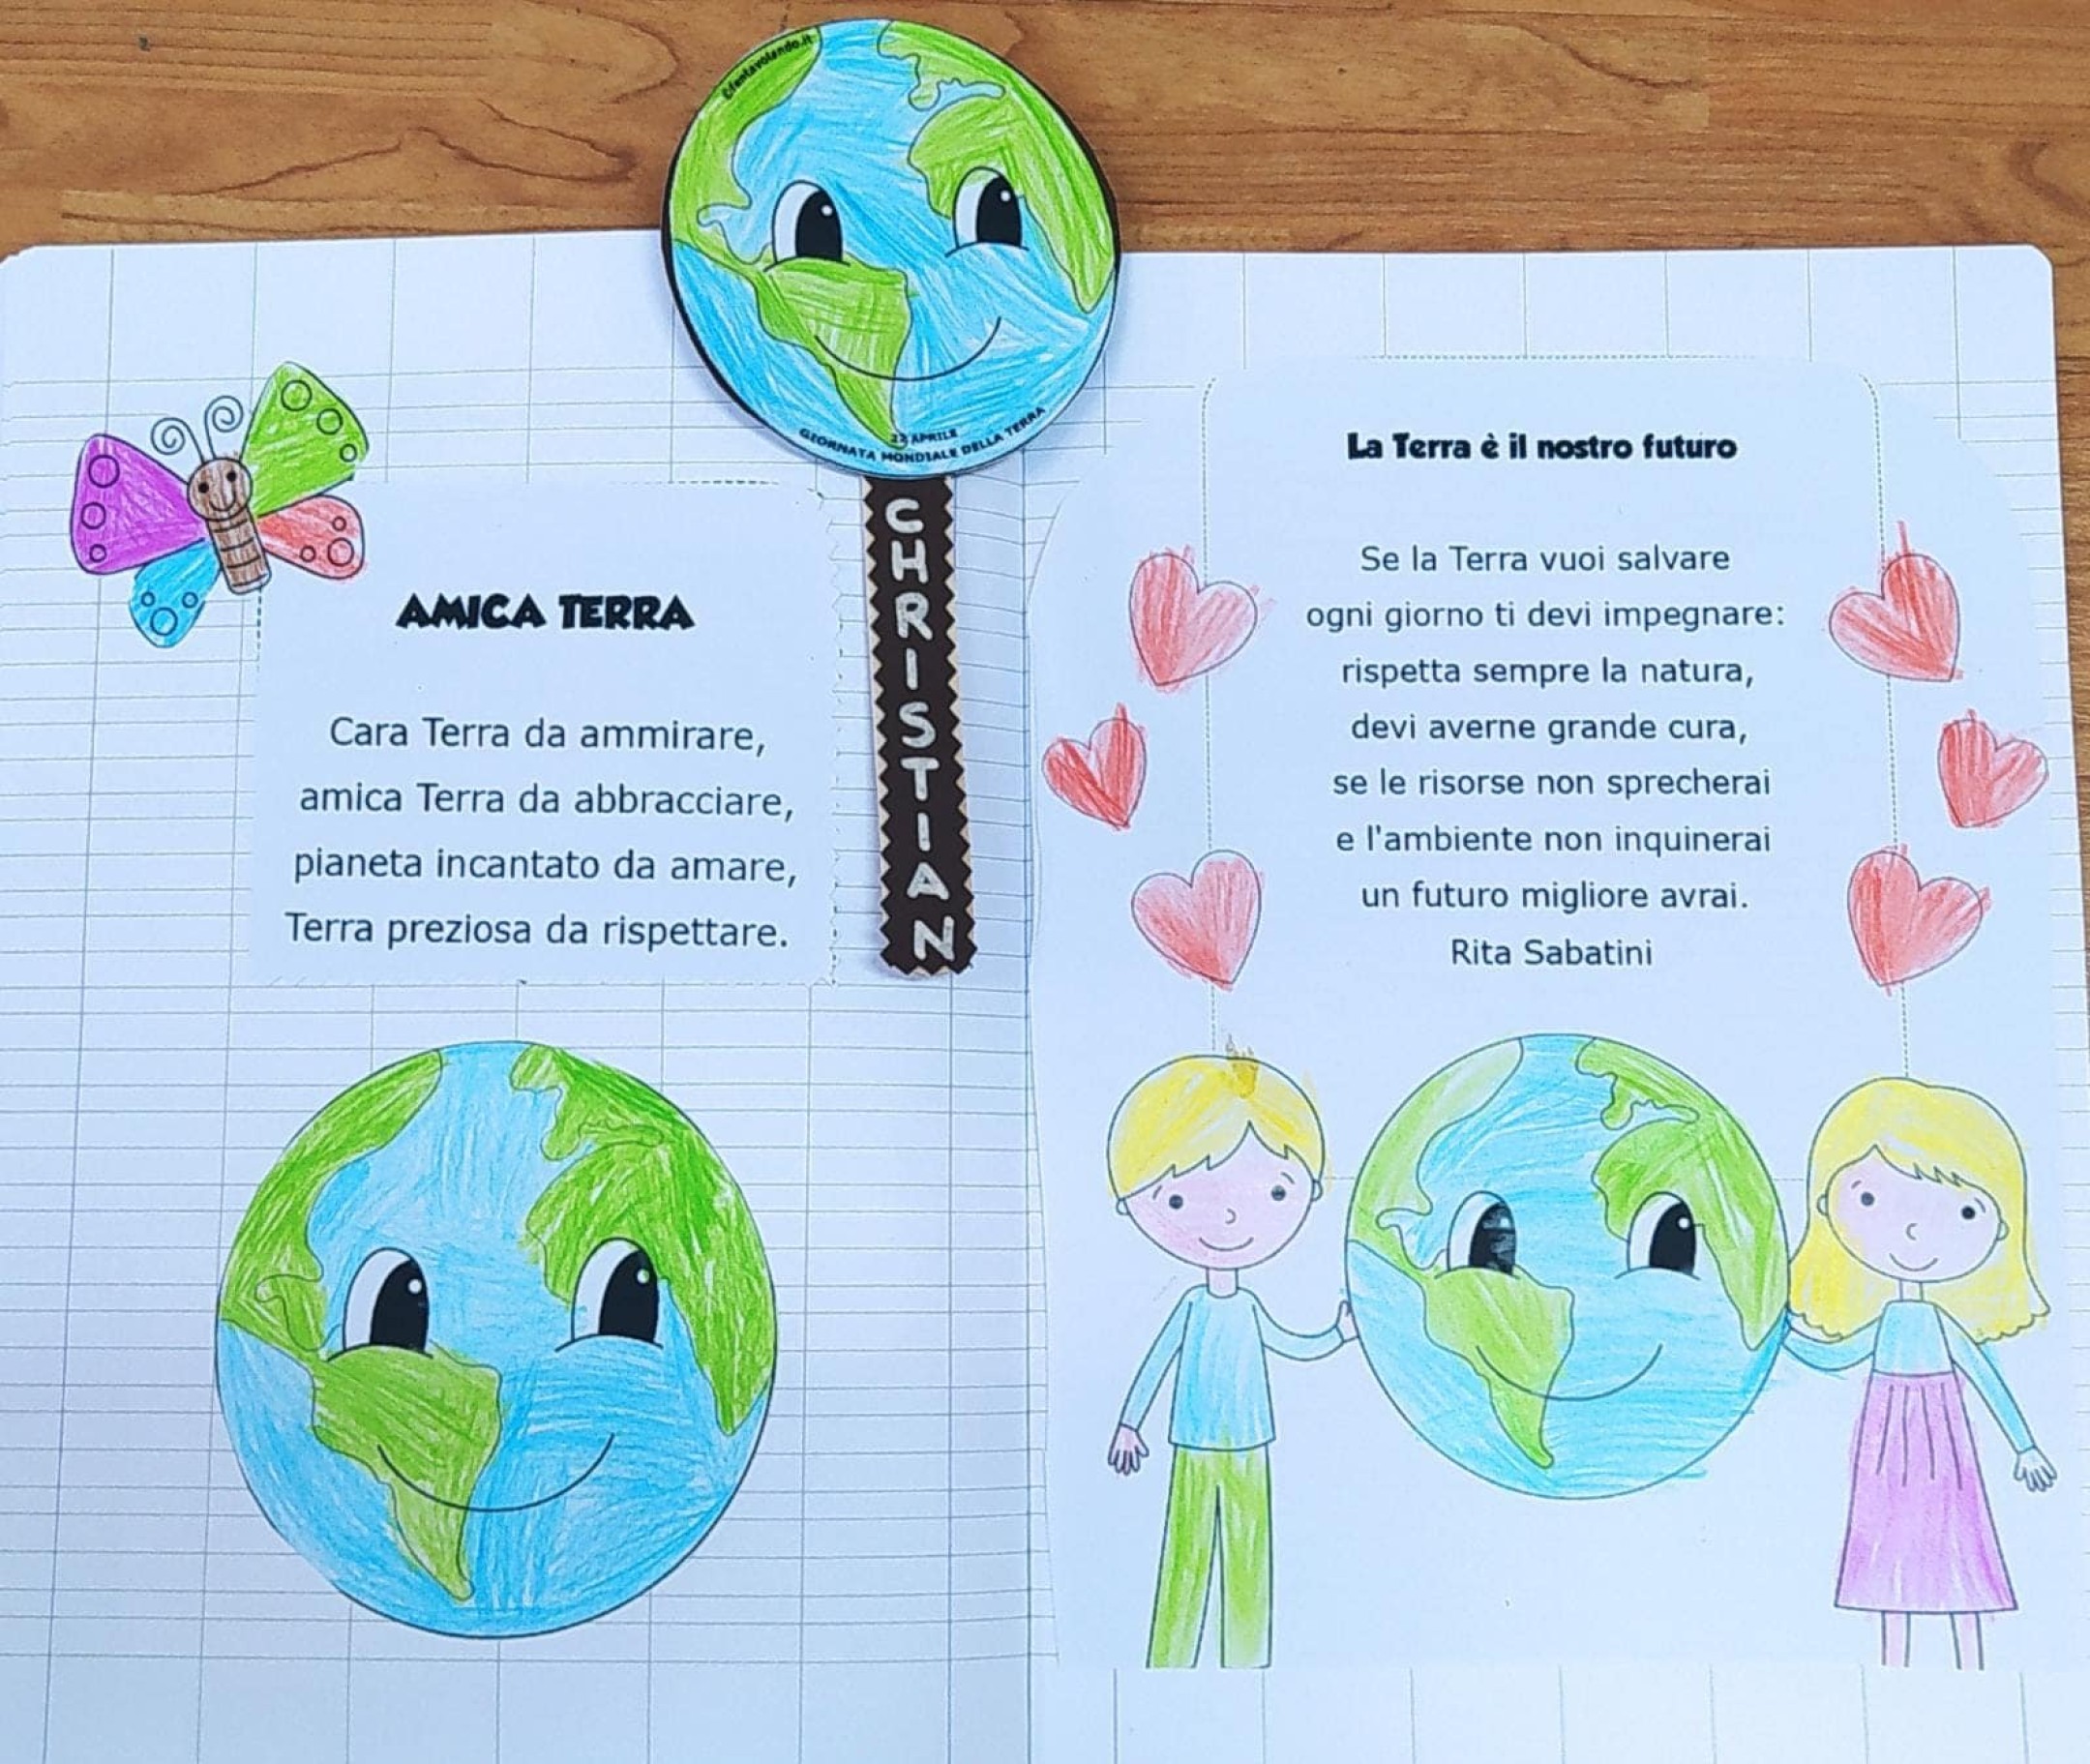 ©fantavolando.it
22 APRILE
GIORNATA MONDIALE DELLA TERRA
CHRISTIAN
AMICA TERRA
Cara Terra da ammirare,
amica Terra da abbracciare,
pianeta incantato da amare,
Terra preziosa da rispettare.
La Terra è il nostro futuro
Se la Terra vuoi salvare
ogni giorno ti devi impegnare:
rispetta sempre la natura,
devi averne grande cura,
se le risorse non sprecherai
e l'ambiente non inquinerai
un futuro migliore avrai.
Rita Sabatini